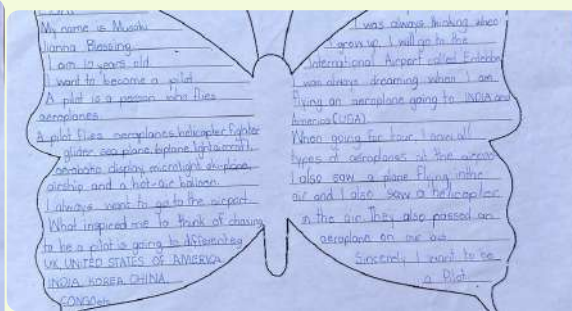 My name is Musaki
Jianna Blessing
I am 10 years old
I want to become a pilot
A pilot is a person who flies
aeroplanes
A pilot flies aeroplanes, helicopter, fighter
glider, sea plane, biplane, light aircraft,
aerobatic display, microlight, ski-plane,
airship and a hot-air balloon.
I always want to go to the airport.
What inspired me to think of chosing
to be a pilot is going to different eg
UK, UNITED STATES OF AMERICA
INDIA, KOREA, CHINA,
CONGO etc
I was always thinking when
I grow up, I will go to the
International Airport called Entebbe
I was always dreaming when I am
flying an aeroplane going to INDIA and
America (USA).
When going for tour, I saw all
types of aeroplanes at the airport
I also saw a plane flying in the
air and I also saw a helicopter
in the air. They also passed an
aeroplane on our
Sincerely I want to be
a Pilot